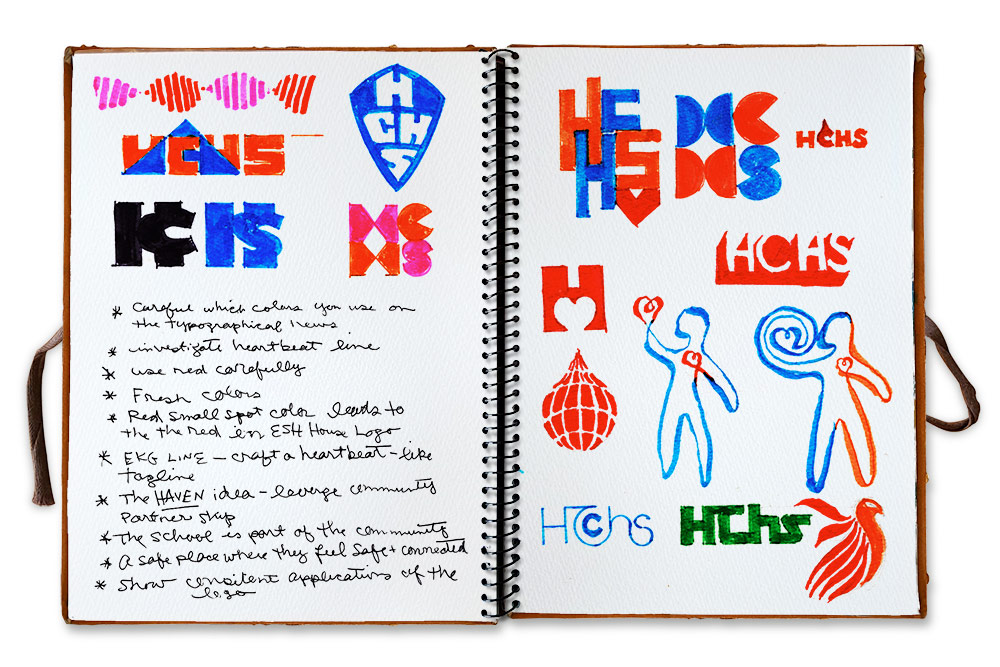 HCHS
H
CHS
HC HS
HC
HS
* Careful which colors you use on
the typographical news
* investigate heartbeat line
* use red carefully
* Fresh colors
* Red small spot color leads to
the the red in ESH House Logo
* EKG LINE – craft a heartbeat-like
tagline
* The HAVEN idea – leverge community
Partner skip
* The school is part of the community
* A safe place where they feel safe + connected
* Show consitent applications of the
logo
HC
HS
HC
HS
HCHS
HCHS
H
HCHS
HChs